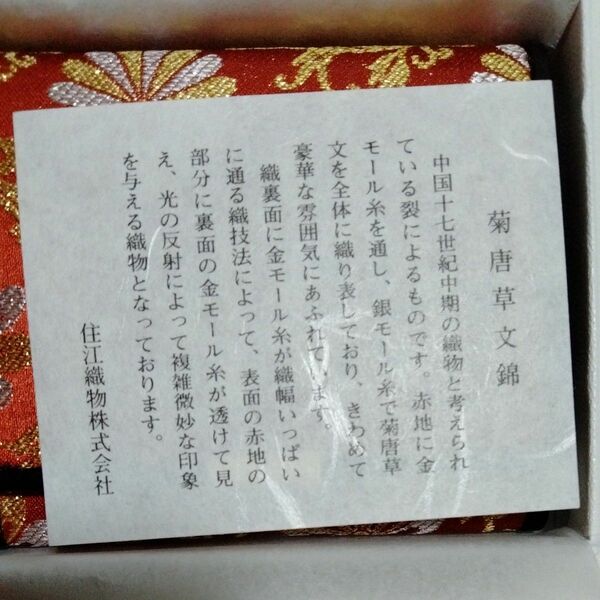 菊唐草文錦
中国十七世紀中期の織物と考えられ
ている裂によるものです。赤地に金
モール糸を通し、銀モール糸で菊唐草
文を全体に織り表しており、きわめて
豪華な雰囲気にあふれています。
織裏面に金モール糸が織幅いっぱい
に通る織技法によって、表面の赤地の
部分に裏面の金モール糸が透けて見
え、光の反射によって複雑微妙な印象
を与える織物となっております。
住江織物株式会社